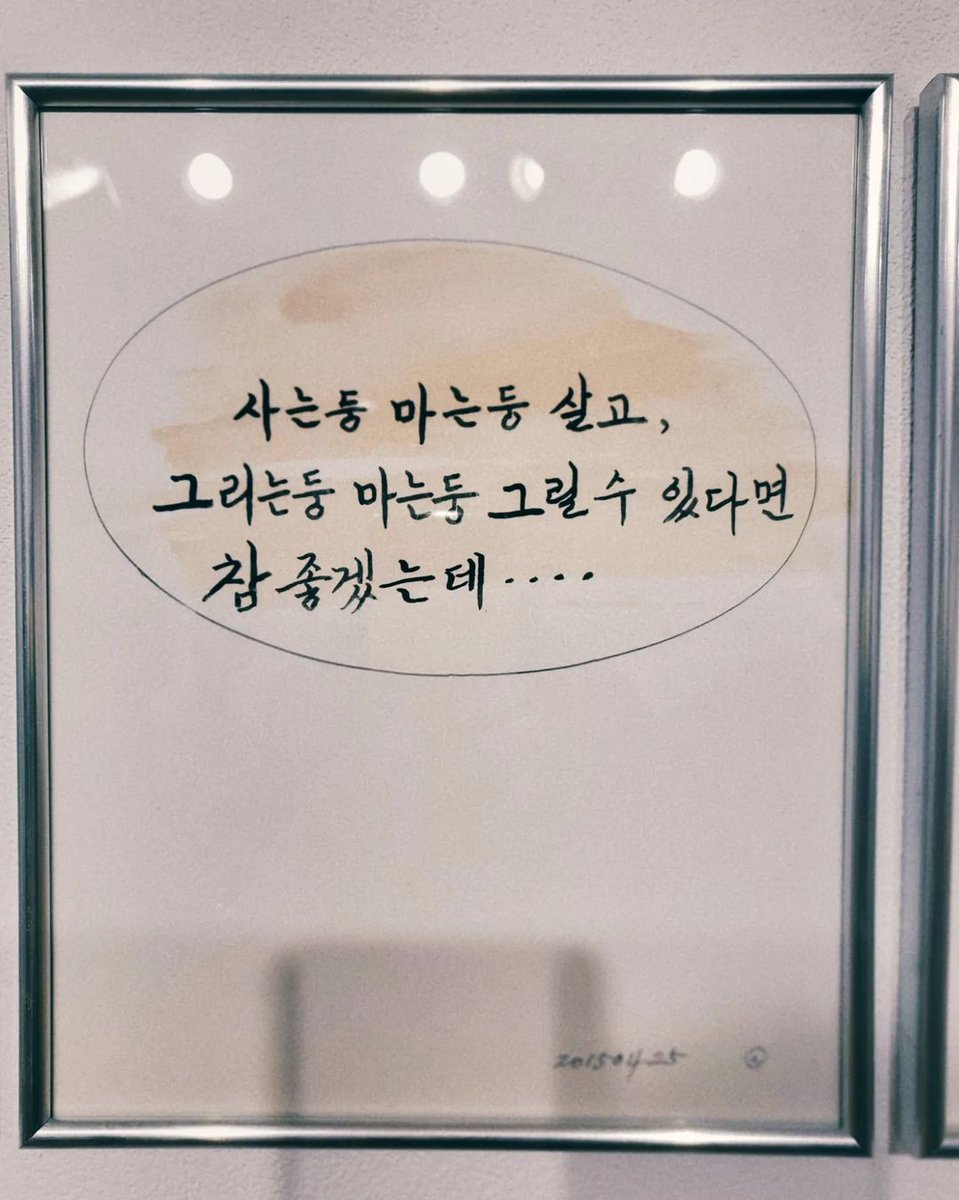 사는둥 마는둥 살고,
그리는둥 마는둥 그릴 수 있다면
참 좋겠는데····
20150425